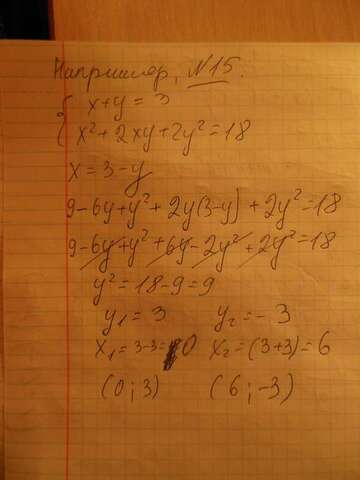 Например, №15.
x+y=3
x²+2xy+2y²=18
x=3-y
9-6y+y²+2y(3-y)+2y²=18
9-6y+y²+6y-2y²+2y²=18
y²=18-9=9
y₁=3 y₂=-3
x₁=3-3=0 x₂=(3+3)=6
(0;3) (6;-3)